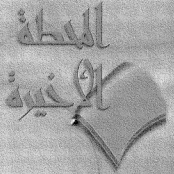 المحطة
الاخيرة